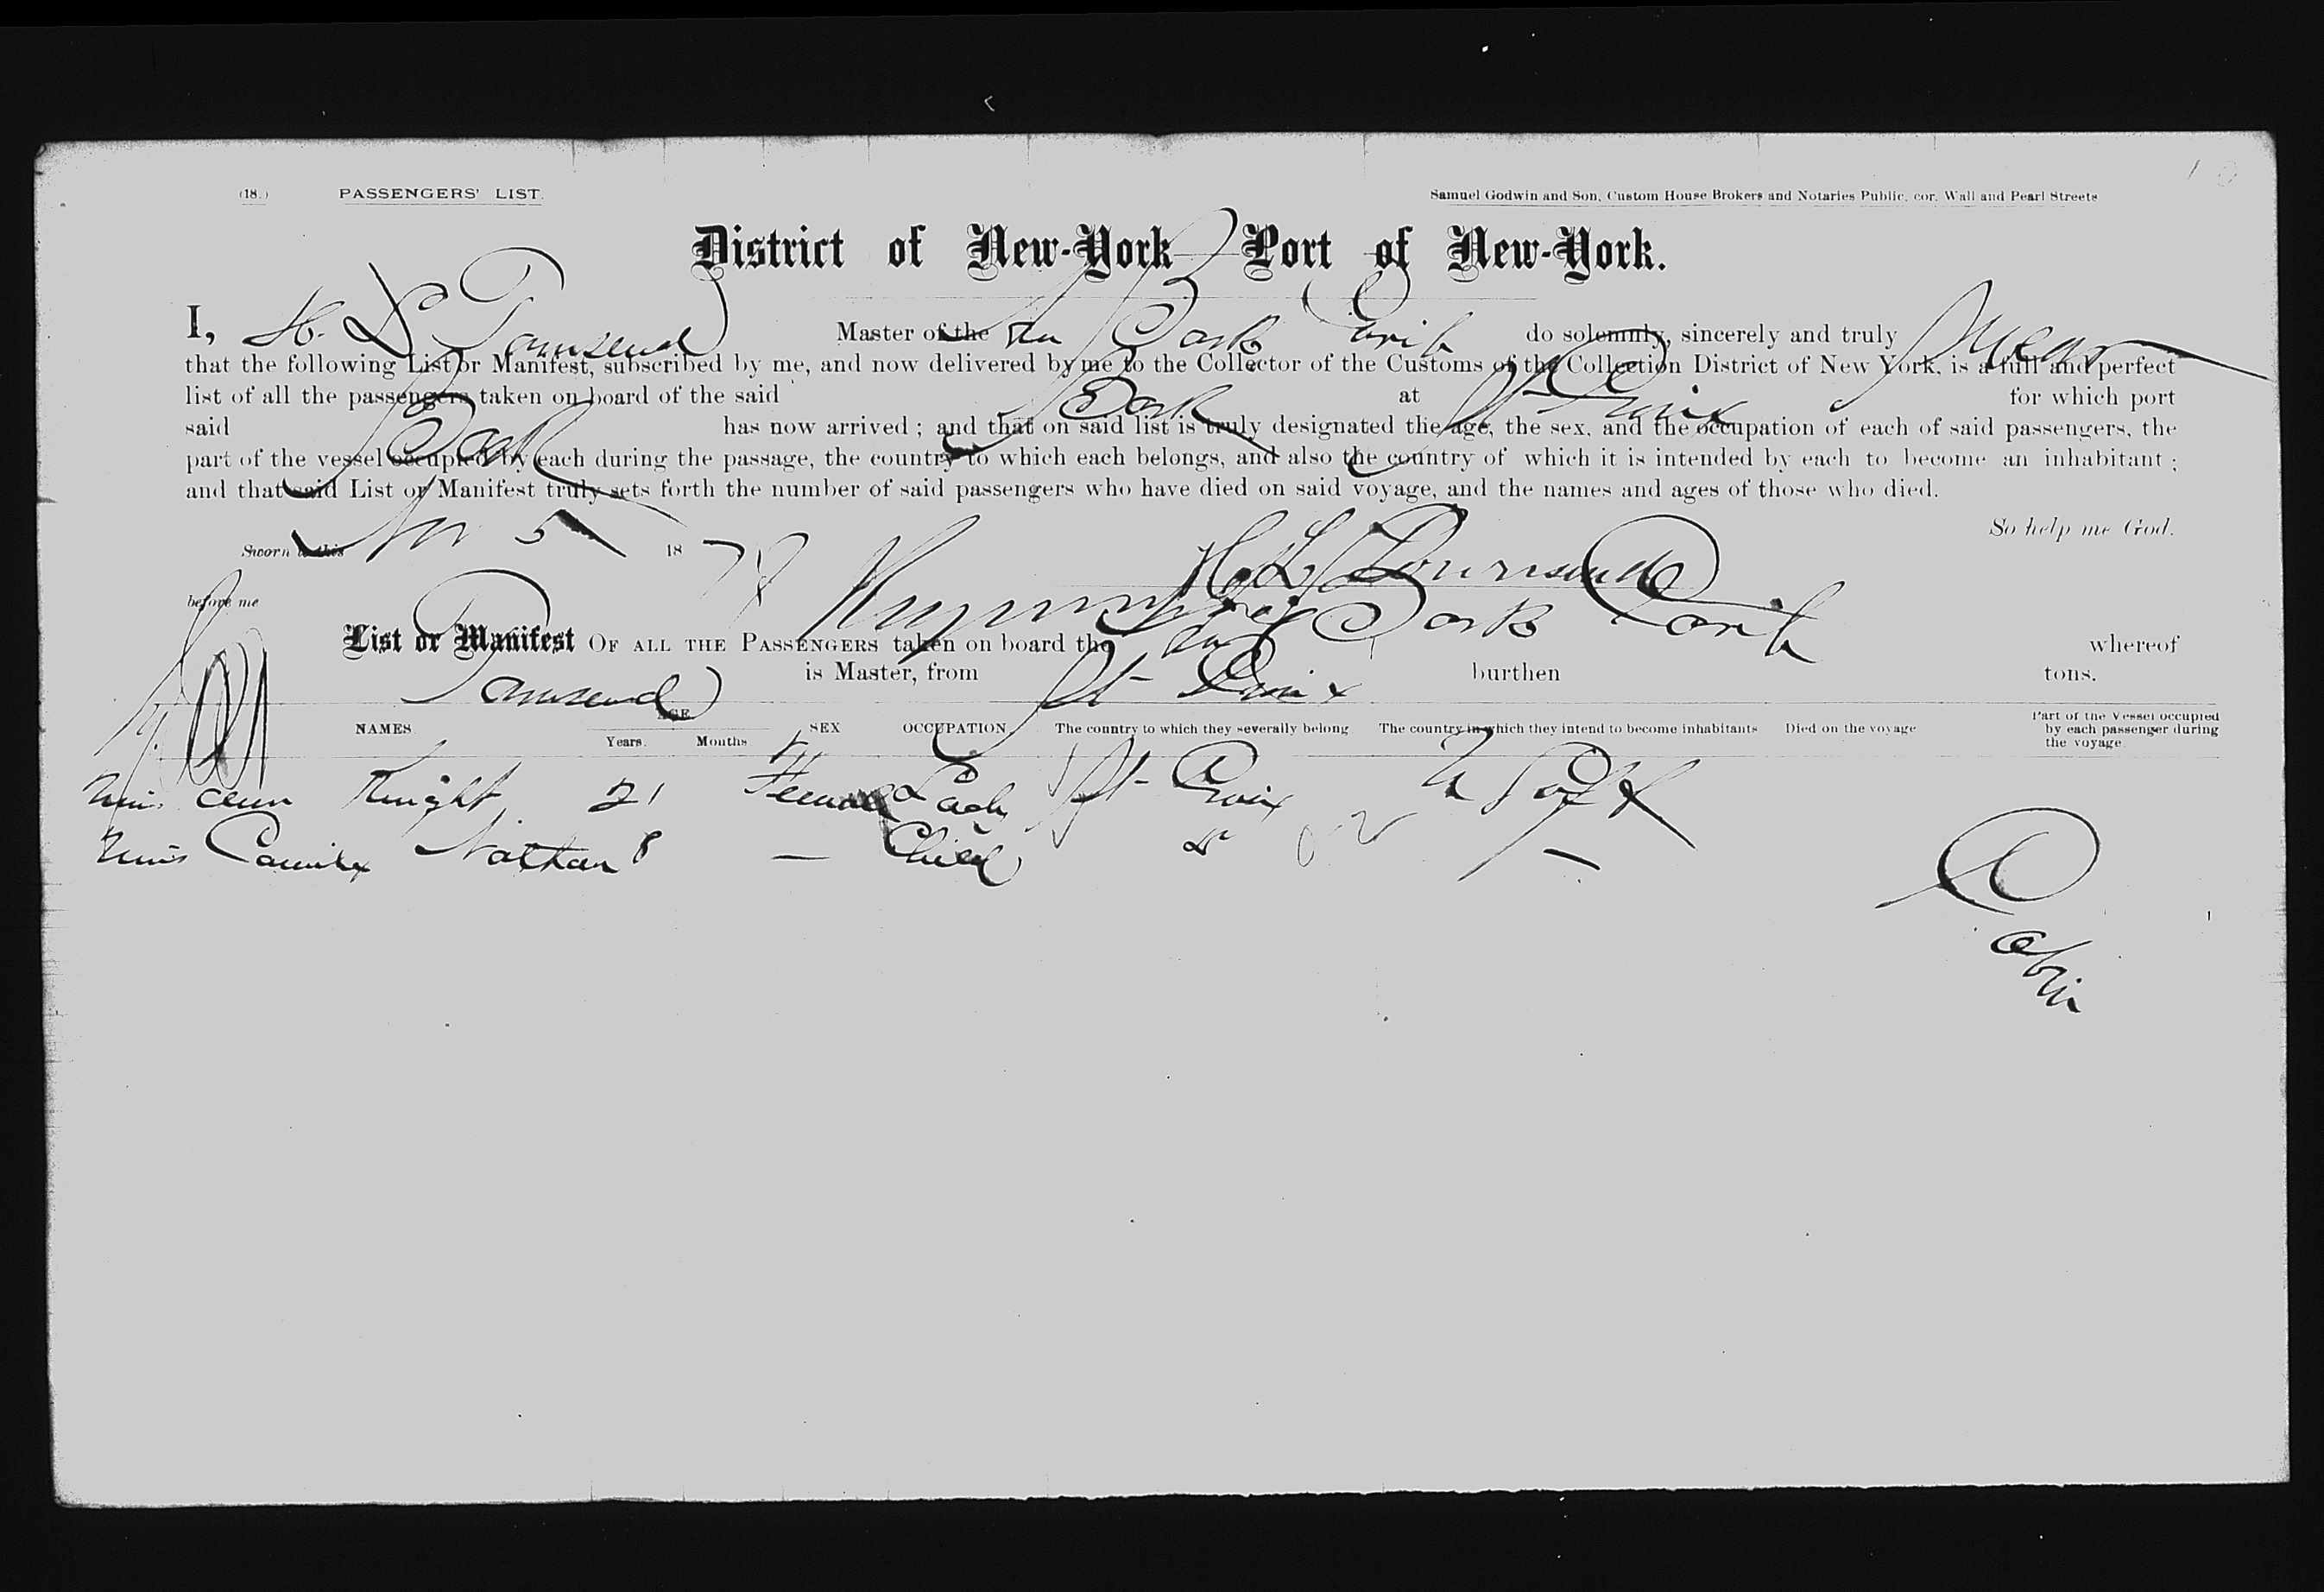 (18.) PASSENGERS' LIST. Samuel Godwin and Son, Custom House Brokers and Notaries Public, cor. Wall and Pearl Streets
District of New-York Port of New-York.
I, H. L. Townsend Master of the Bark Carib do solemnly, sincerely and truly Swear
that the following List or Manifest, subscribed by me, and now delivered by me to the Collector of the Customs of the Collection District of New York, is a full and perfect
list of all the passengers taken on board of the said Bark at St Croix for which port
said Bark has now arrived ; and that on said list is truly designated the age, the sex, and the occupation of each of said passengers, the
part of the vessel occupied by each during the passage, the country to which each belongs, and also the country of which it is intended by each to become an inhabitant ;
and that said List or Manifest truly sets forth the number of said passengers who have died on said voyage, and the names and ages of those who died.
So help me God.
Sworn to this Nov 5 1878 H. L. Townsend
before me
List or Manifest OF ALL THE PASSENGERS taken on board the Bark Carib whereof
Townsend is Master, from St Croix burthen tons.
NAMES AGE Years. Months SEX OCCUPATION The country to which they severally belong The country in which they intend to become inhabitants Died on the voyage Part of the Vessel occupied by each passenger during the voyage
Miss Knight 21 Female Lady St Croix N York
Miss Nathan 8 — Child —
Cabin